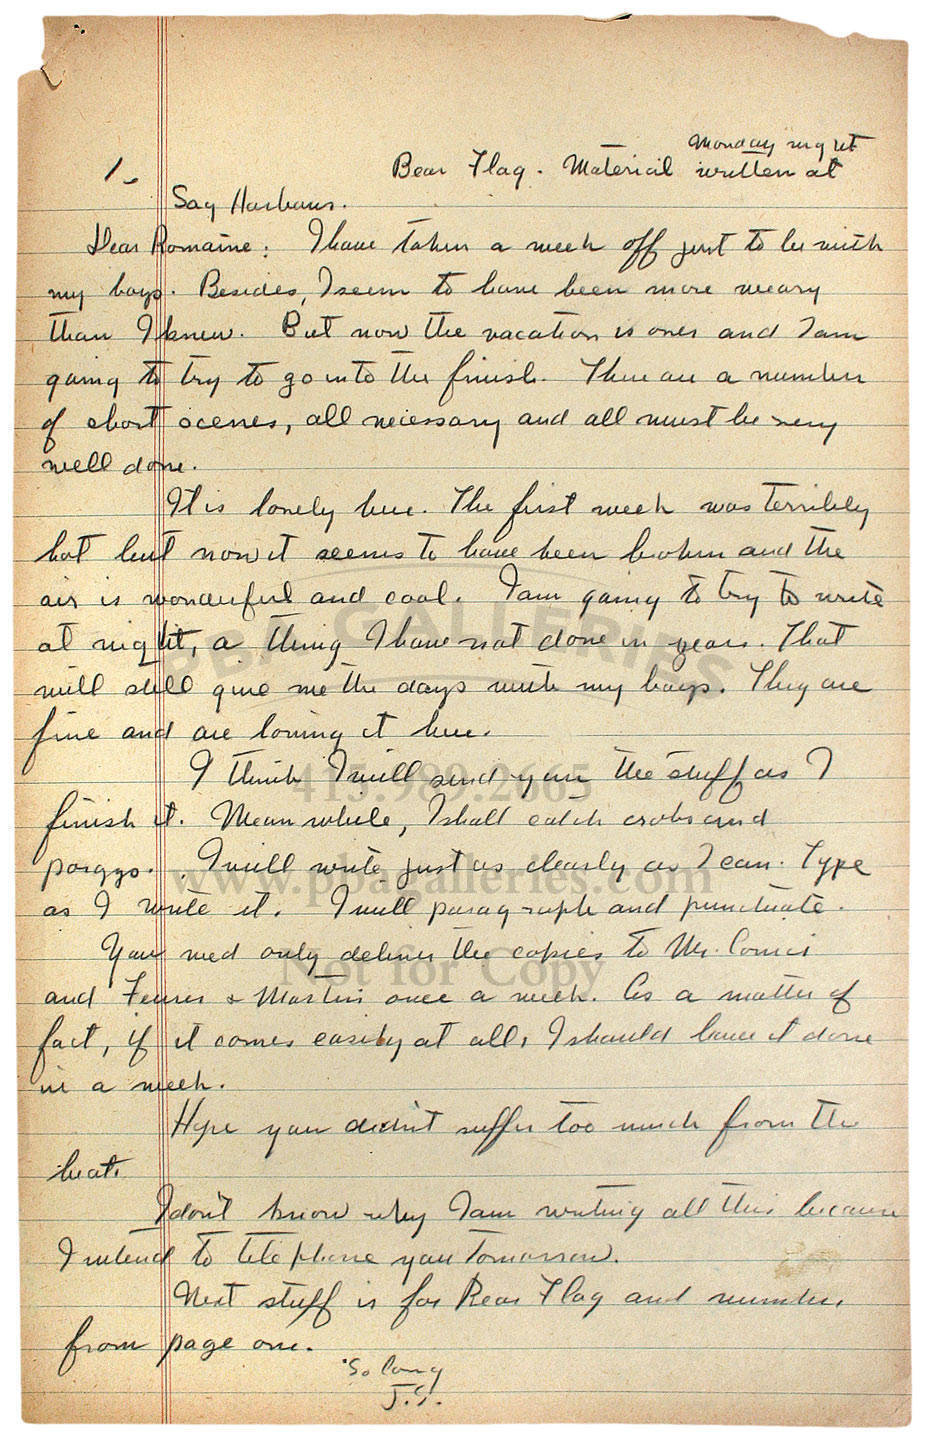 Monday night
1. Bear Flag. Material written at
Sag Harbour.
Dear Romaine: I have taken a week off just to be with
my boys. Besides, I seem to have been more weary
than I knew. But now the vacation is over and I am
going to try to go into the finish. There are a number
of short scenes, all necessary and all must be very
well done.
It is lonely here. The first week was terribly
hot but now it seems to have been broken and the
air is wonderful and cool. I am going to try to write
at night, a thing I have not done in years. That
will still give me the days with my boys. They are
fine and are loving it here.
I think I will send you the stuff as I
finish it. Mean while, I shall catch crabs and
porggs. I will write just as clearly as I can. Type
as I write it. I will paragraph and punctuate.
You need only deliver the copies to Mr. Covici
and Feuer & Martin once a week. As a matter of
fact, if it comes easily at all, I should have it done
in a week.
Hope you didn't suffer too much from the
heat.
I don't know why I am writing all this because
I intend to tele phone you tomorrow.
Next stuff is for Bear Flag and number
from page one.
So long
J.S.
PBA GALLERIES
415.989.2665
www.pbagalleries.com
Not for Copy